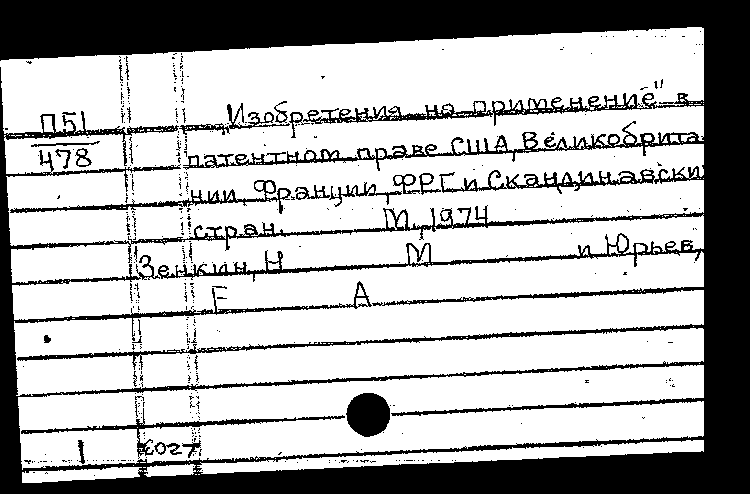 П51
478
„Изобретения на применение" в
патентном праве США, Великобрита-
нии, Франции, ФРГ и Скандинавских
стран. М., 1974
Зенкин, Н М и Юрьев,
Е А
1 6027